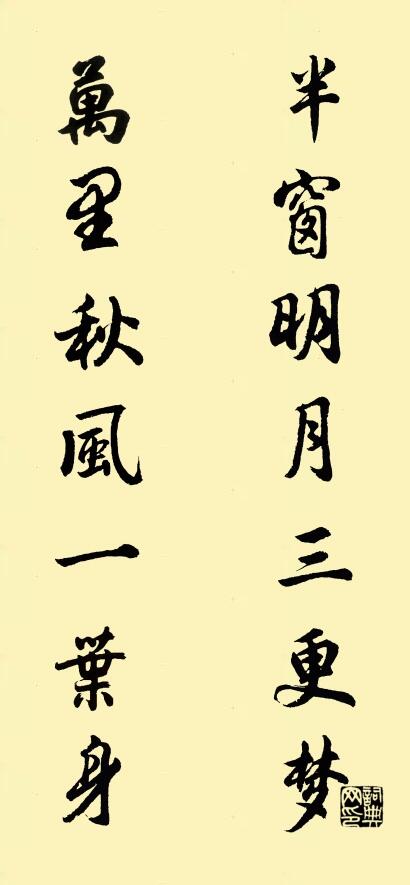 半窗明月三更梦
萬里秋風一葉身
詞典网印